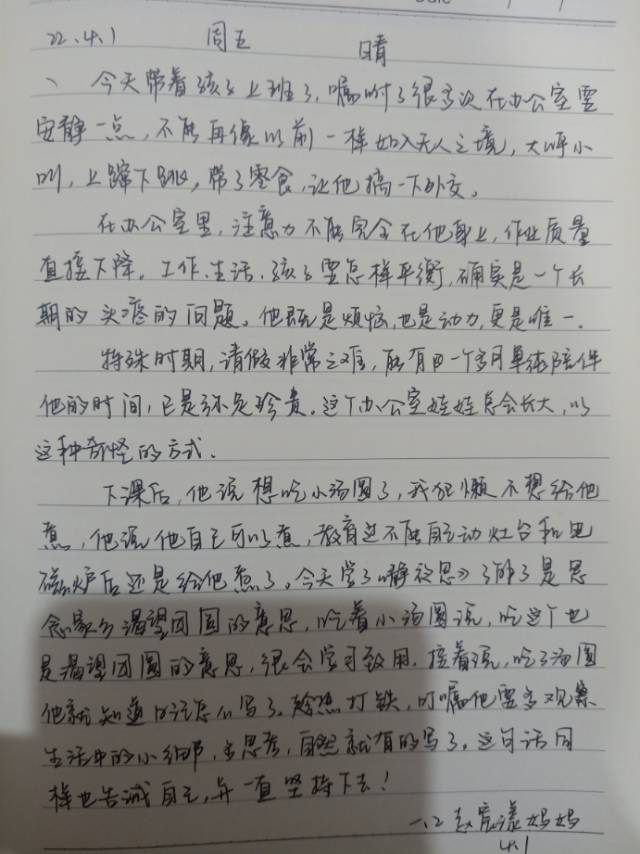 Date / /
22.4.1 周五 晴
一、今天带着孩子上班了，嘱咐了很多次在办公室要
安静一点，不能再像以前一样如入无人之境，大呼小
叫，上蹿下跳，带了零食，让他搞一下外交。
在办公室里，注意力不能完全在他身上，作业质量
直接下降。工作、生活、孩子要怎样平衡，确实是一个长
期的头疼的问题。他既是烦恼，也是动力，更是唯一。
特殊时期，请假非常之难，能有一个多月单纯陪伴
他的时间，已是弥足珍贵。这个办公室娃娃总会长大，以
这种奇怪的方式。
下课后，他说想吃小汤圆了，我犯懒不想给他
煮，他说他自己可以煮，教育过不能自己动灶台和电
磁炉后还是给他煮了。今天学了《静夜思》了解了是思
念家乡渴望团圆的意思，吃着小汤圆说，吃这个也
是渴望团圆的意思，很会学习致用。接着说，吃了汤圆
他就知道日记怎么写了。趁热打铁，叮嘱他要多观察
生活中的小细节，多思考，自然就有的写了。这句话同
样也告诫自己，并一直坚持下去！
一.2 赵宸漾妈妈
4.1